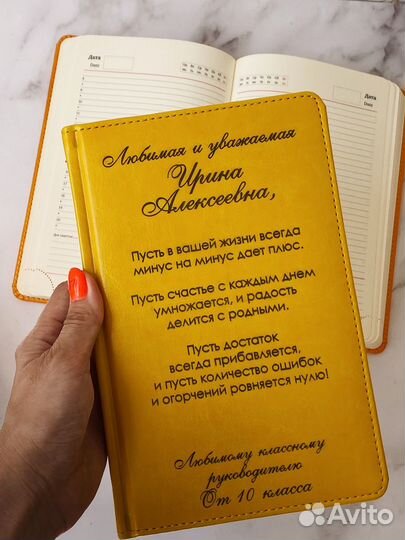 Дата
Date
Дата
Date
Любимая и уважаемая
Ирина
Алексеевна,
Пусть в вашей жизни всегда
минус на минус дает плюс.
Пусть счастье с каждым днем
умножается, и радость
делится с родными.
Пусть достаток
всегда прибавляется,
и пусть количество ошибок
и огорчений ровняется нулю!
Любимому классному
руководителю
От 10 класса
Avito